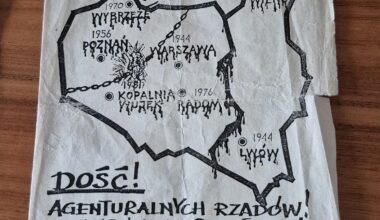 1970
WYBRZEŻE
1956
POZNAŃ
1944
WARSZAWA
1981
KOPALNIA
WUJEK
1976
RADOM
1944
LWÓW
DOŚĆ!
AGENTURALNYCH RZĄDÓW!